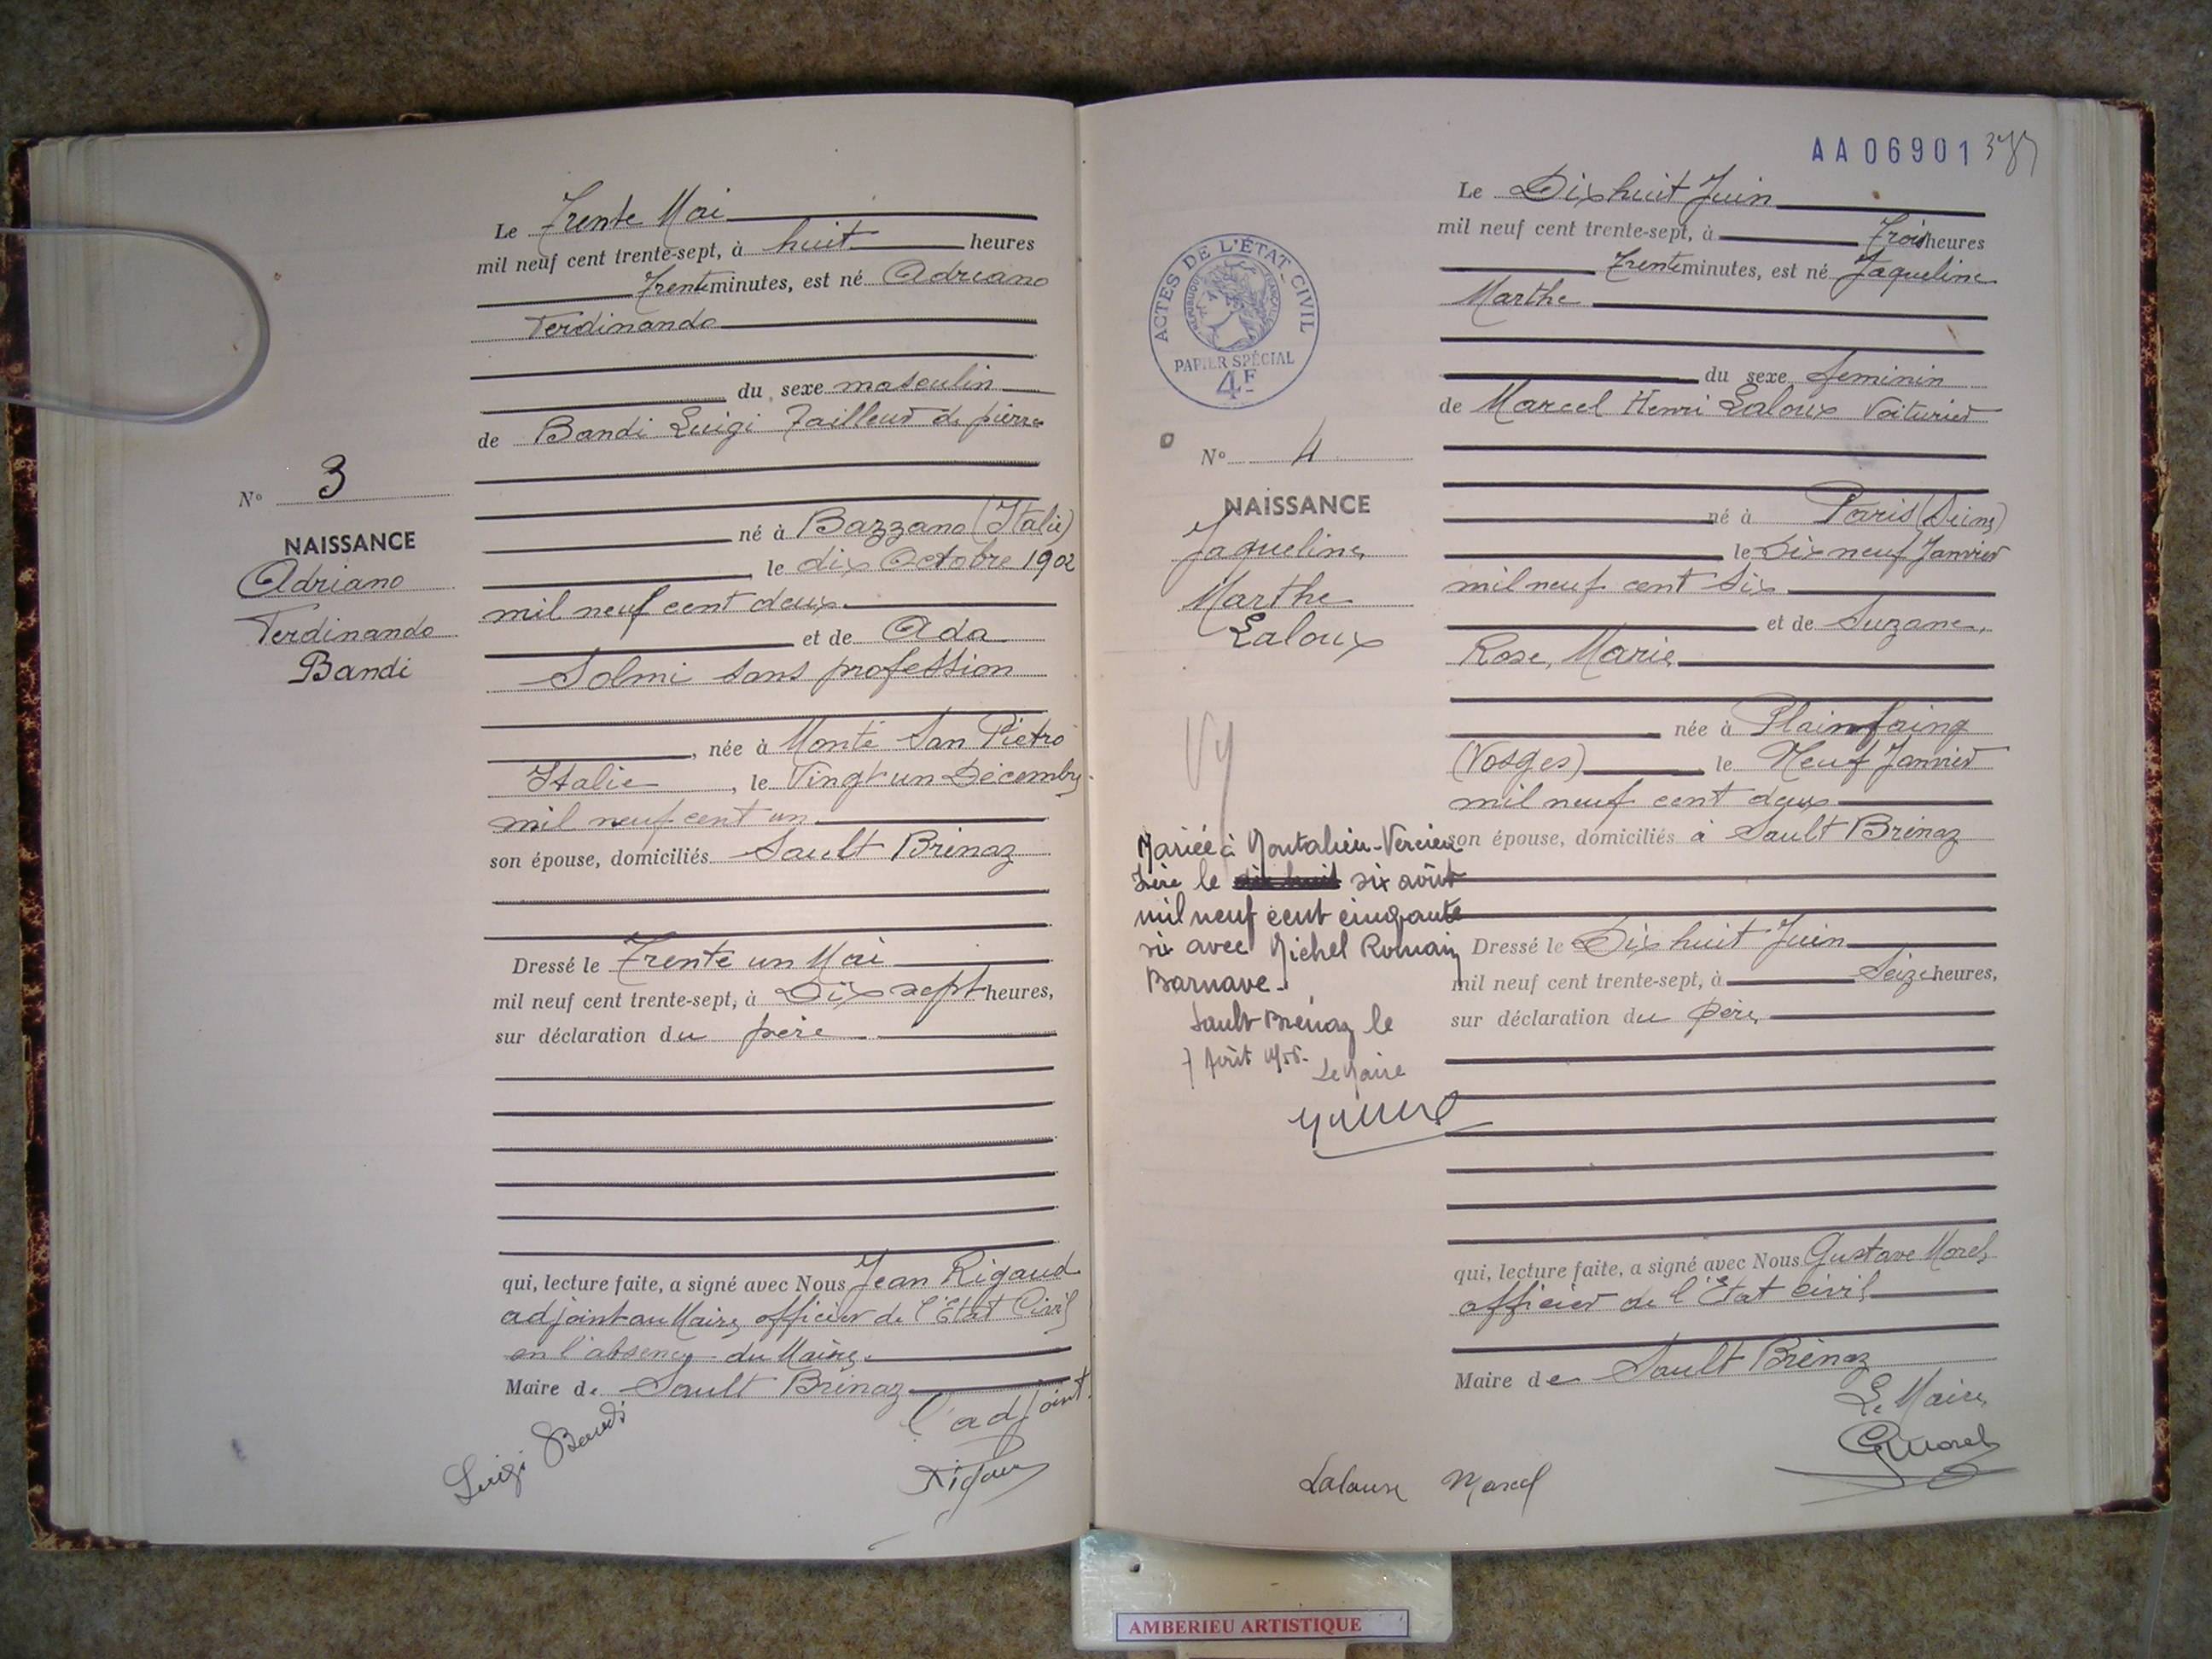 Le Trente Mai
mil neuf cent trente-sept, à huit heures
Trente minutes, est né Adriano
Ferdinando
du sexe masculin
de Bandi Luigi Tailleur de pierre
né à Bazzano (Italie)
le dix Octobre 1902
mil neuf cent deux
et de Ada
Solmi sans profession
, née à Monté San Pietro
Italie, le Vingt un Décembre
mil neuf cent un
son épouse, domiciliés Sault Brénaz
Dressé le Trente un Mai
mil neuf cent trente-sept, à Dix sept heures,
sur déclaration du père
qui, lecture faite, a signé avec Nous Jean Rigaud
adjoint au Maire, officier de l'Etat Civil
en l'absence du Maire.
Maire de Sault Brénaz
l'adjoint.
Luigi Bandi
Rigaud
N° 3
NAISSANCE
Adriano
Ferdinando
Bandi
AA06901
Le Dix huit Juin
mil neuf cent trente-sept, à Trois heures
Trente minutes, est né Jaqueline
Marthe
du sexe feminin
de Marcel Henri Laloux Voiturier
né à Paris (Seine)
le Dix neuf Janvier
mil neuf cent six
et de Suzane,
Rose, Marie
née à Plainfaing
(Vosges) le Neuf Janvier
mil neuf cent deux
son épouse, domiciliés à Sault Brénaz
Dressé le Dix huit Juin
mil neuf cent trente-sept, à Seize heures,
sur déclaration du père,
qui, lecture faite, a signé avec Nous Gustave Morel
officier de l'Etat civil
Maire de Sault Brénaz
Le Maire
GMorel
Laloux Marcel
ACTES DE L'ÉTAT CIVIL
RÉPUBLIQUE FRANÇAISE
PAPIER SPÉCIAL
4F
N° 4
NAISSANCE
Jaqueline
Marthe
Laloux
Mariée à Montalieu-Vercieu
Isère le six août
mil neuf cent cinquante
six avec Michel Romain
Barnave.
Sault Brénaz le
7 Août 1956.
Le Maire
AMBERIEU ARTISTIQUE